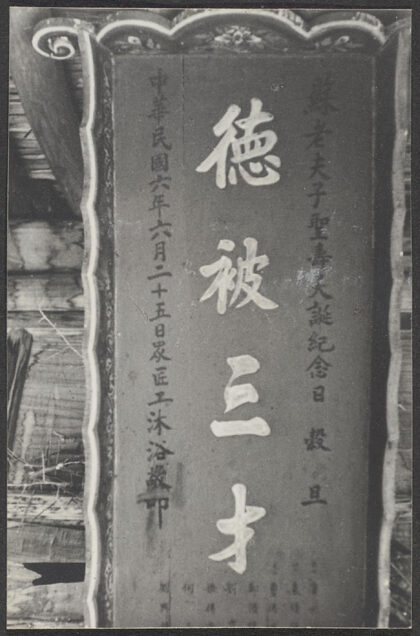 蘇老夫子聖壽大誕紀念日 穀旦
德被三才
中華民國六年六月二十五日眾匠工沐浴敬叩